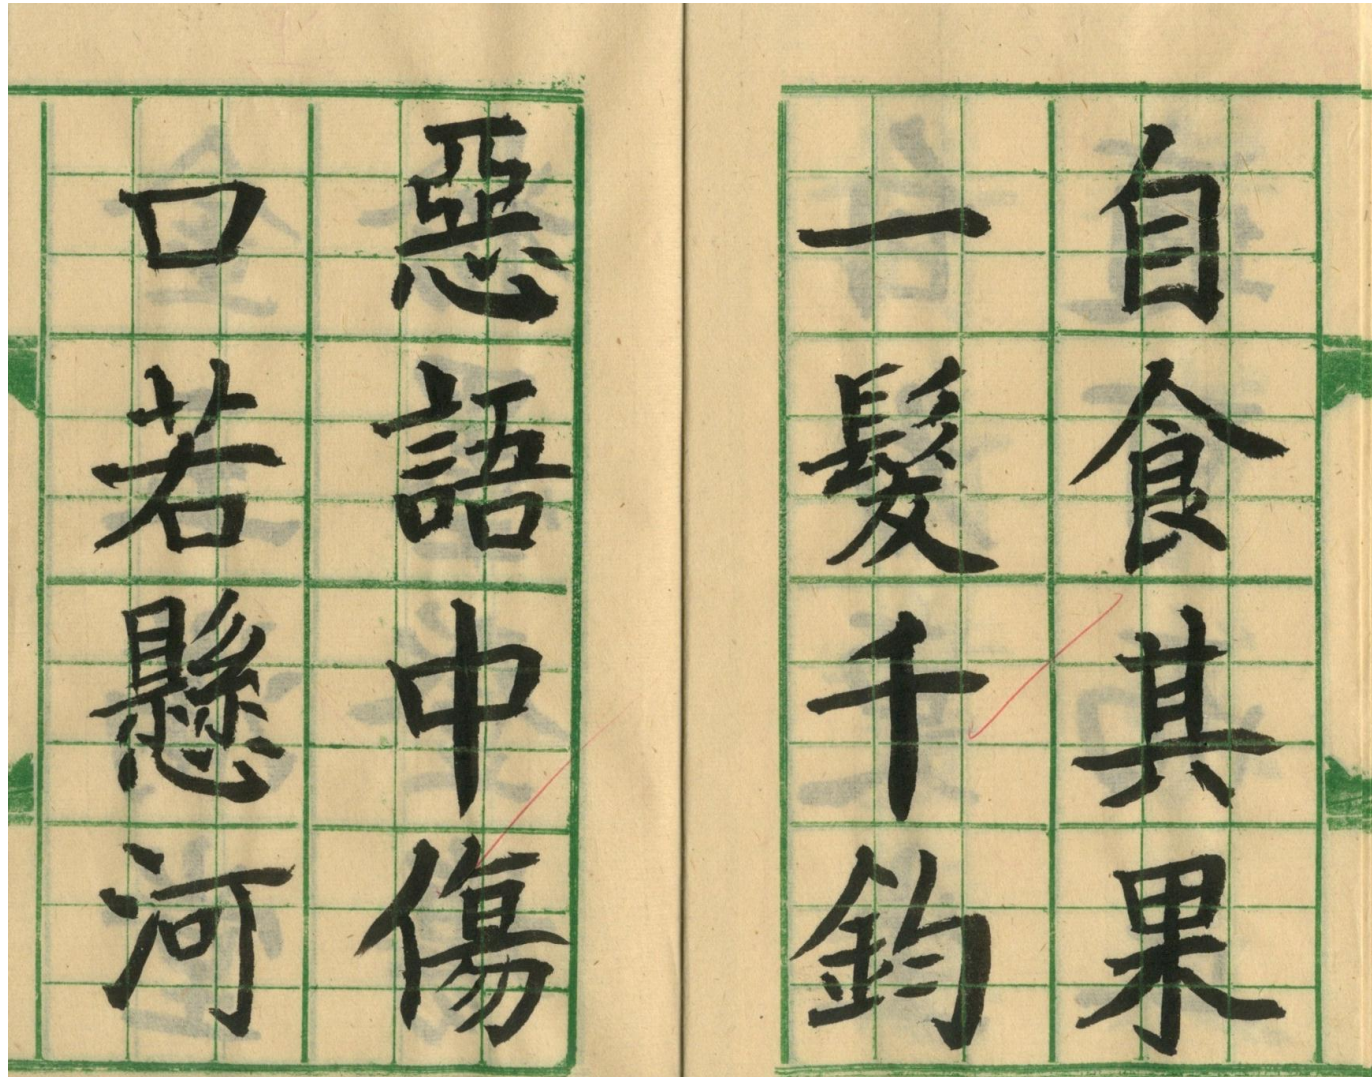 自食其果
一髮千鈞
惡語中傷
口若懸河